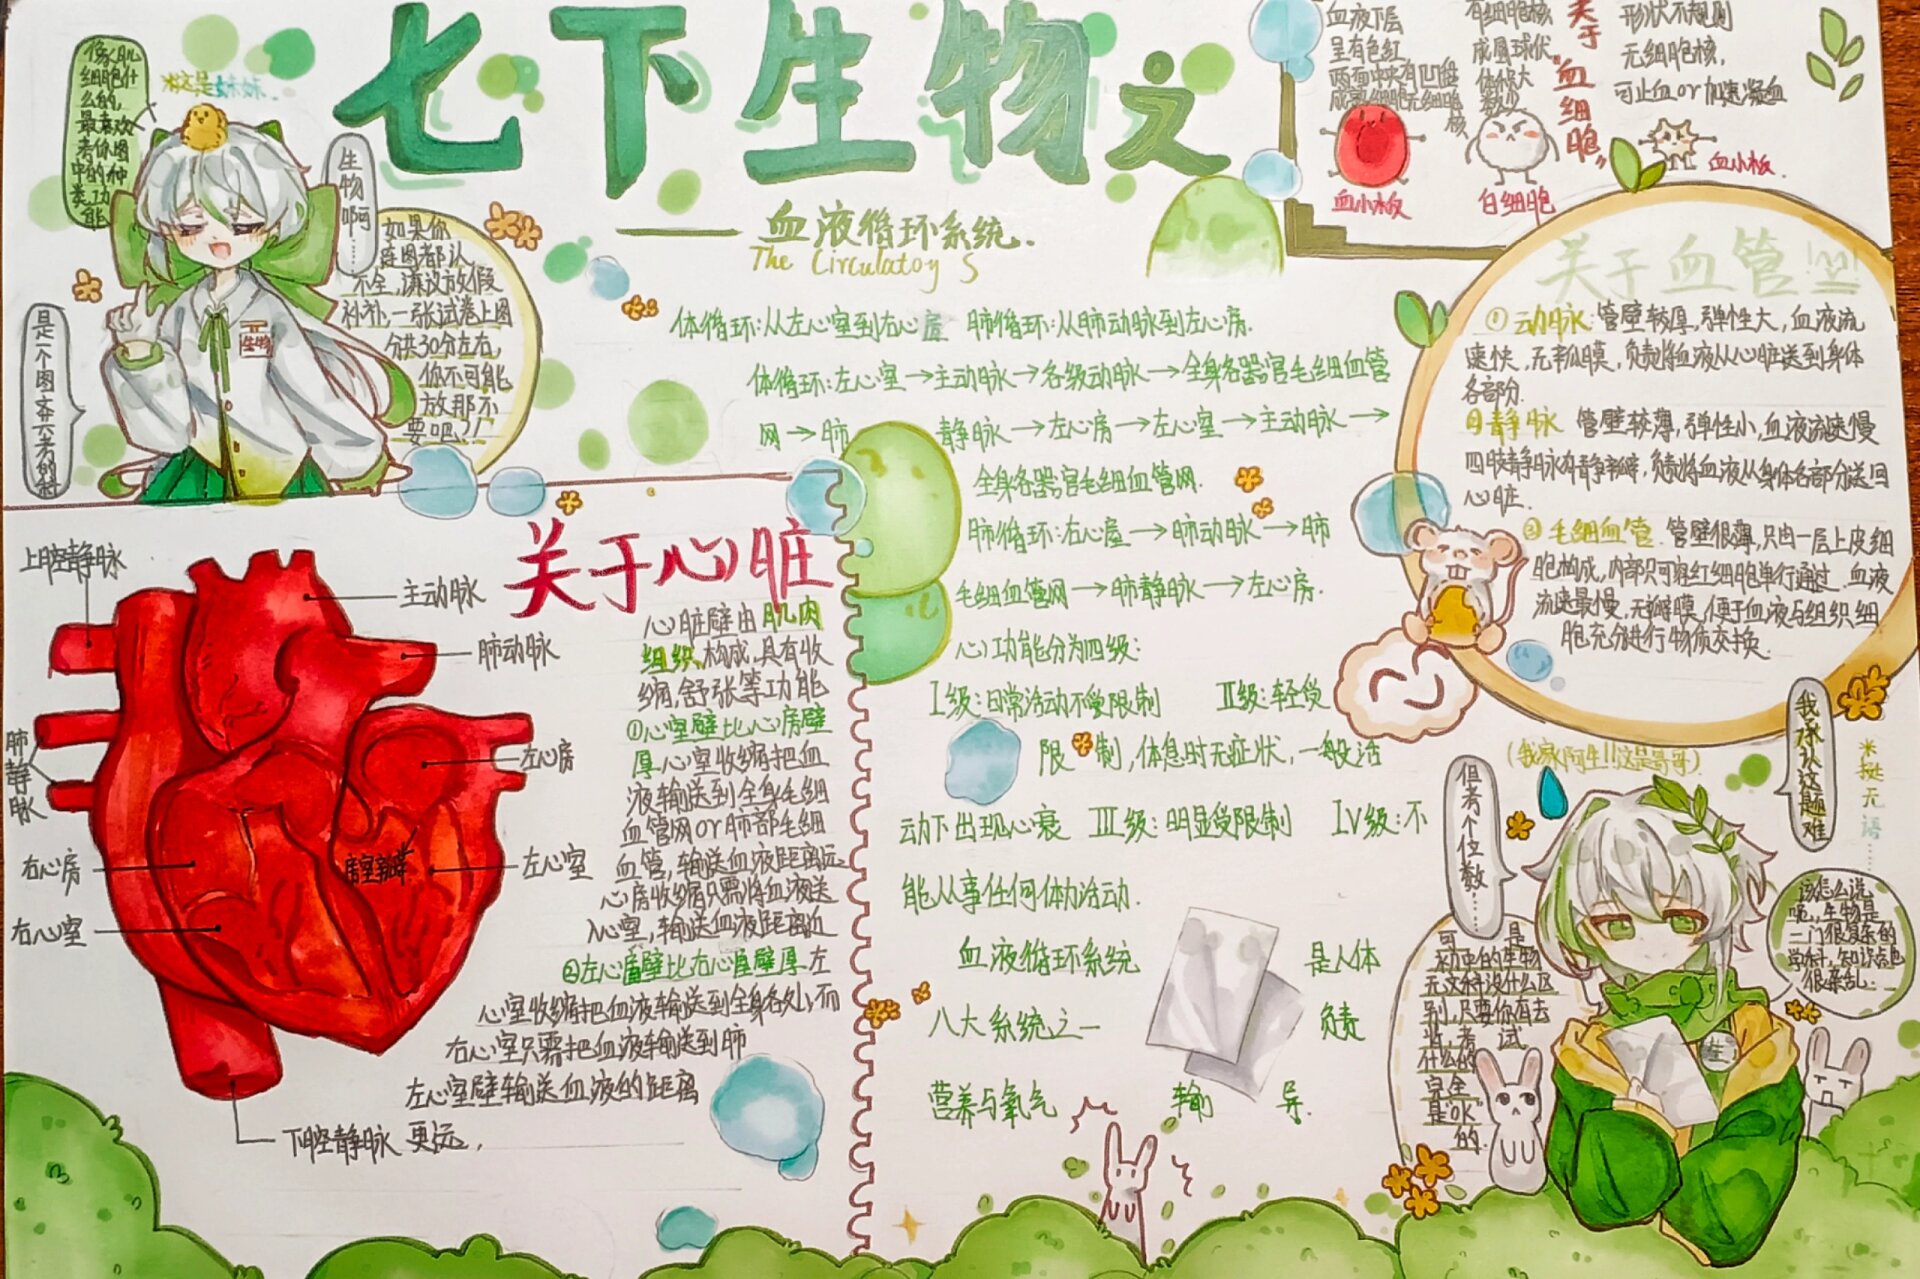 七下生物之
——血液循环系统.
The Circulatoy S
像肌
细胞什
么的,
最喜欢
考你图
中的种
类、功
能
※这是妹妹.
生物啊……
如果你
连图都认
不全,谋议放假
补补,一张试卷上图
分共30分左右,
你不可能
放那不
要吧?!
生物
血液下层
呈有色红
两面中央有凹陷
成熟细胞无细胞核
血小板
有细胞核
成圆球状
体积大
数少
白细胞
关于"血细胞"
形状不规则
无细胞核,
可止血or加速凝血
血小板.
体循环:从左心室到右心房 肺循环:从肺动脉到左心房.
体循环:左心室→主动脉→各级动脉→全身各器官毛细血管
网→肺 静脉→左心房→左心室→主动脉→
全身各器官毛细血管网.
肺循环:右心室→肺动脉→肺
毛细血管网→肺静脉→左心房.
心功能分为四级:
I级:日常活动不受限制 II级:轻受
限制,体息时无症状,一般活
动下出现心衰 III级:明显受限制 IV级:不
能从事任何体力活动.
血液循环系统 是人体
八大系统之一 负责
营养与氧气 输 导.
关于血管
①动脉:管壁较厚,弹性大,血液流
速快,无瓣膜,负责将血液从心脏送到身体
各部分.
②静脉 管壁较薄,弹性小,血液流速慢
四肢静脉有静脉瓣,负责将血液从身体各部分送回
心脏.
③毛细血管.管壁很薄,只由一层上皮细
胞构成,内部只可容红细胞单行通过.血液
流速最慢,无瓣膜,便于血液与组织细
胞充分进行物质交换.
关于心脏
心脏壁由肌肉
组织构成,具有收
缩,舒张等功能
①心室壁比心房壁
厚心室收缩把血
液输送到全身毛细
血管网or肺部毛细
血管,输送血液距离远
心房收缩只需将血液送
入心室,输送血液距离近
②左心室壁比右心室壁厚.左
心室收缩把血液输送到全身各处,而
右心室只需把血液输送到肺
左心室壁输送血液的距离
更远,
上腔静脉
主动脉
肺动脉
肺静脉
左心房
右心房
房室瓣
左心室
右心室
下腔静脉
(我家阿生!!这是哥哥)
我承认这题难
※挺无语……
但考个位数……
该怎么说
呢,生物是
一门很复杂的
学科,知识点也
很杂乱…
可 是
初中的生物
无文科没什么区
别,只要你有去
背,考 试
什么的
完全
是"OK"
的.
生